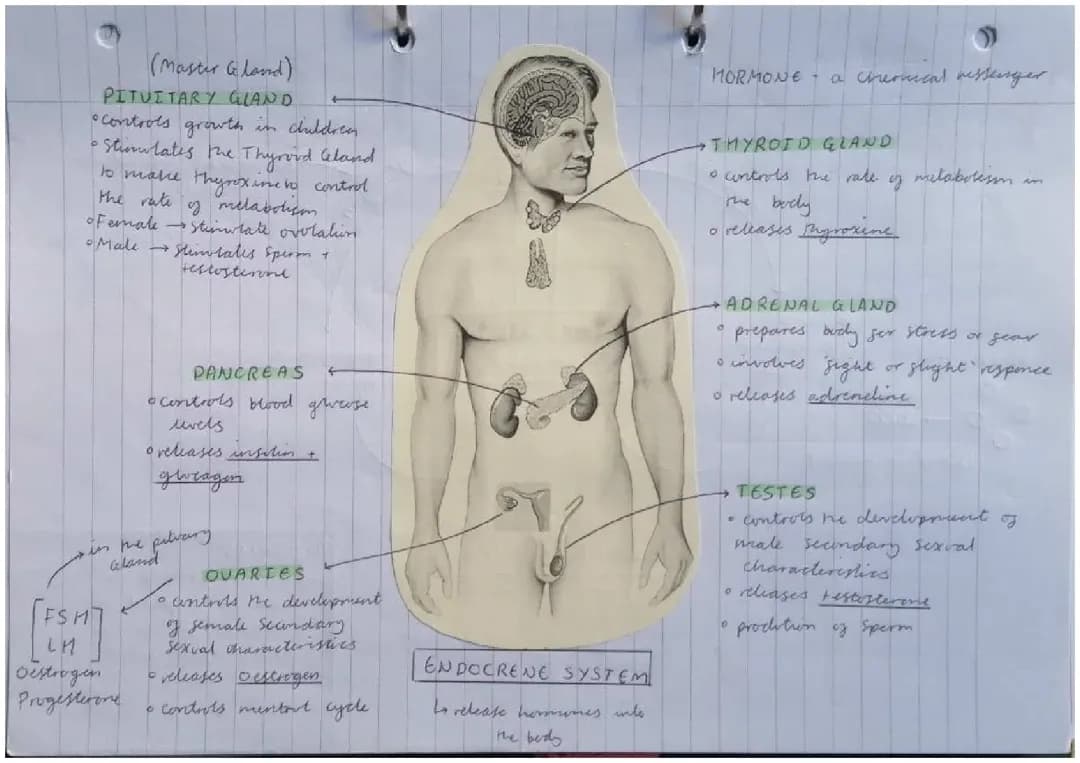 (Master Gland)
PITUITARY GLAND
• controls growth in children
• Stimulates the Thyroid Gland
to make thyroxine to control
the rate of metabolism
• Female → Stimulate ovulation
• Male → Stimulates Sperm +
testosterone
PANCREAS
• controls blood glucose
levels
• releases insulin +
glucagon
in the pituary
Gland
OVARIES
• controls the development
of female secondary
sexual characteristics
• releases Oestrogen
• controls mentrul cycle
[FSH
LH]
Oestrogen
Progesterone
HORMONE - a chemical messenger
THYROID GLAND
• controls the rate of metabolism in
the body
• releases thyroxine
ADRENAL GLAND
• prepares body for stress or fear
• involves 'fight or flight' responce
• releases adreneline
TESTES
• controls the development of
male secondary sexual
characteristics
• releases testosterone
• prodution of sperm
ENDOCRENE SYSTEM
↳ release hormones into
the body